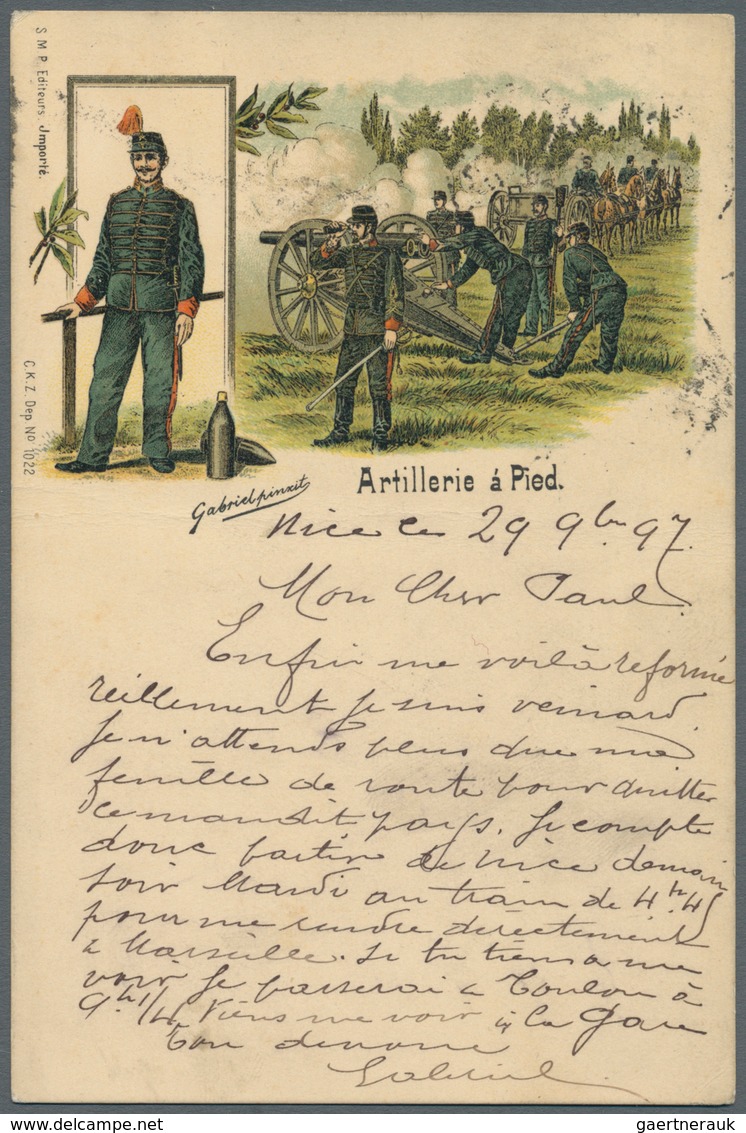 S.M.P. Editeurs. Importé.
C.K.Z. Dep No 1022
Gabriel pinxit
Artillerie á Pied.
Nice le 29 9bre 97
Mon Cher Paul.
Enfin me voilà reformé
réellement je suis veinard.
Je n'attends plus que ma
feuille de route pour quitter
ce maudit pays. Je compte
donc partir de Nice demain
soir Mardi au train de 4h.45
pour me rendre directement
a Marseille. Si tu tiens a me
voir je passerai a Toulon à
9h 1/4 Viens me voir à la Gare
Ton devoué
Gabriel
gaertnerauk